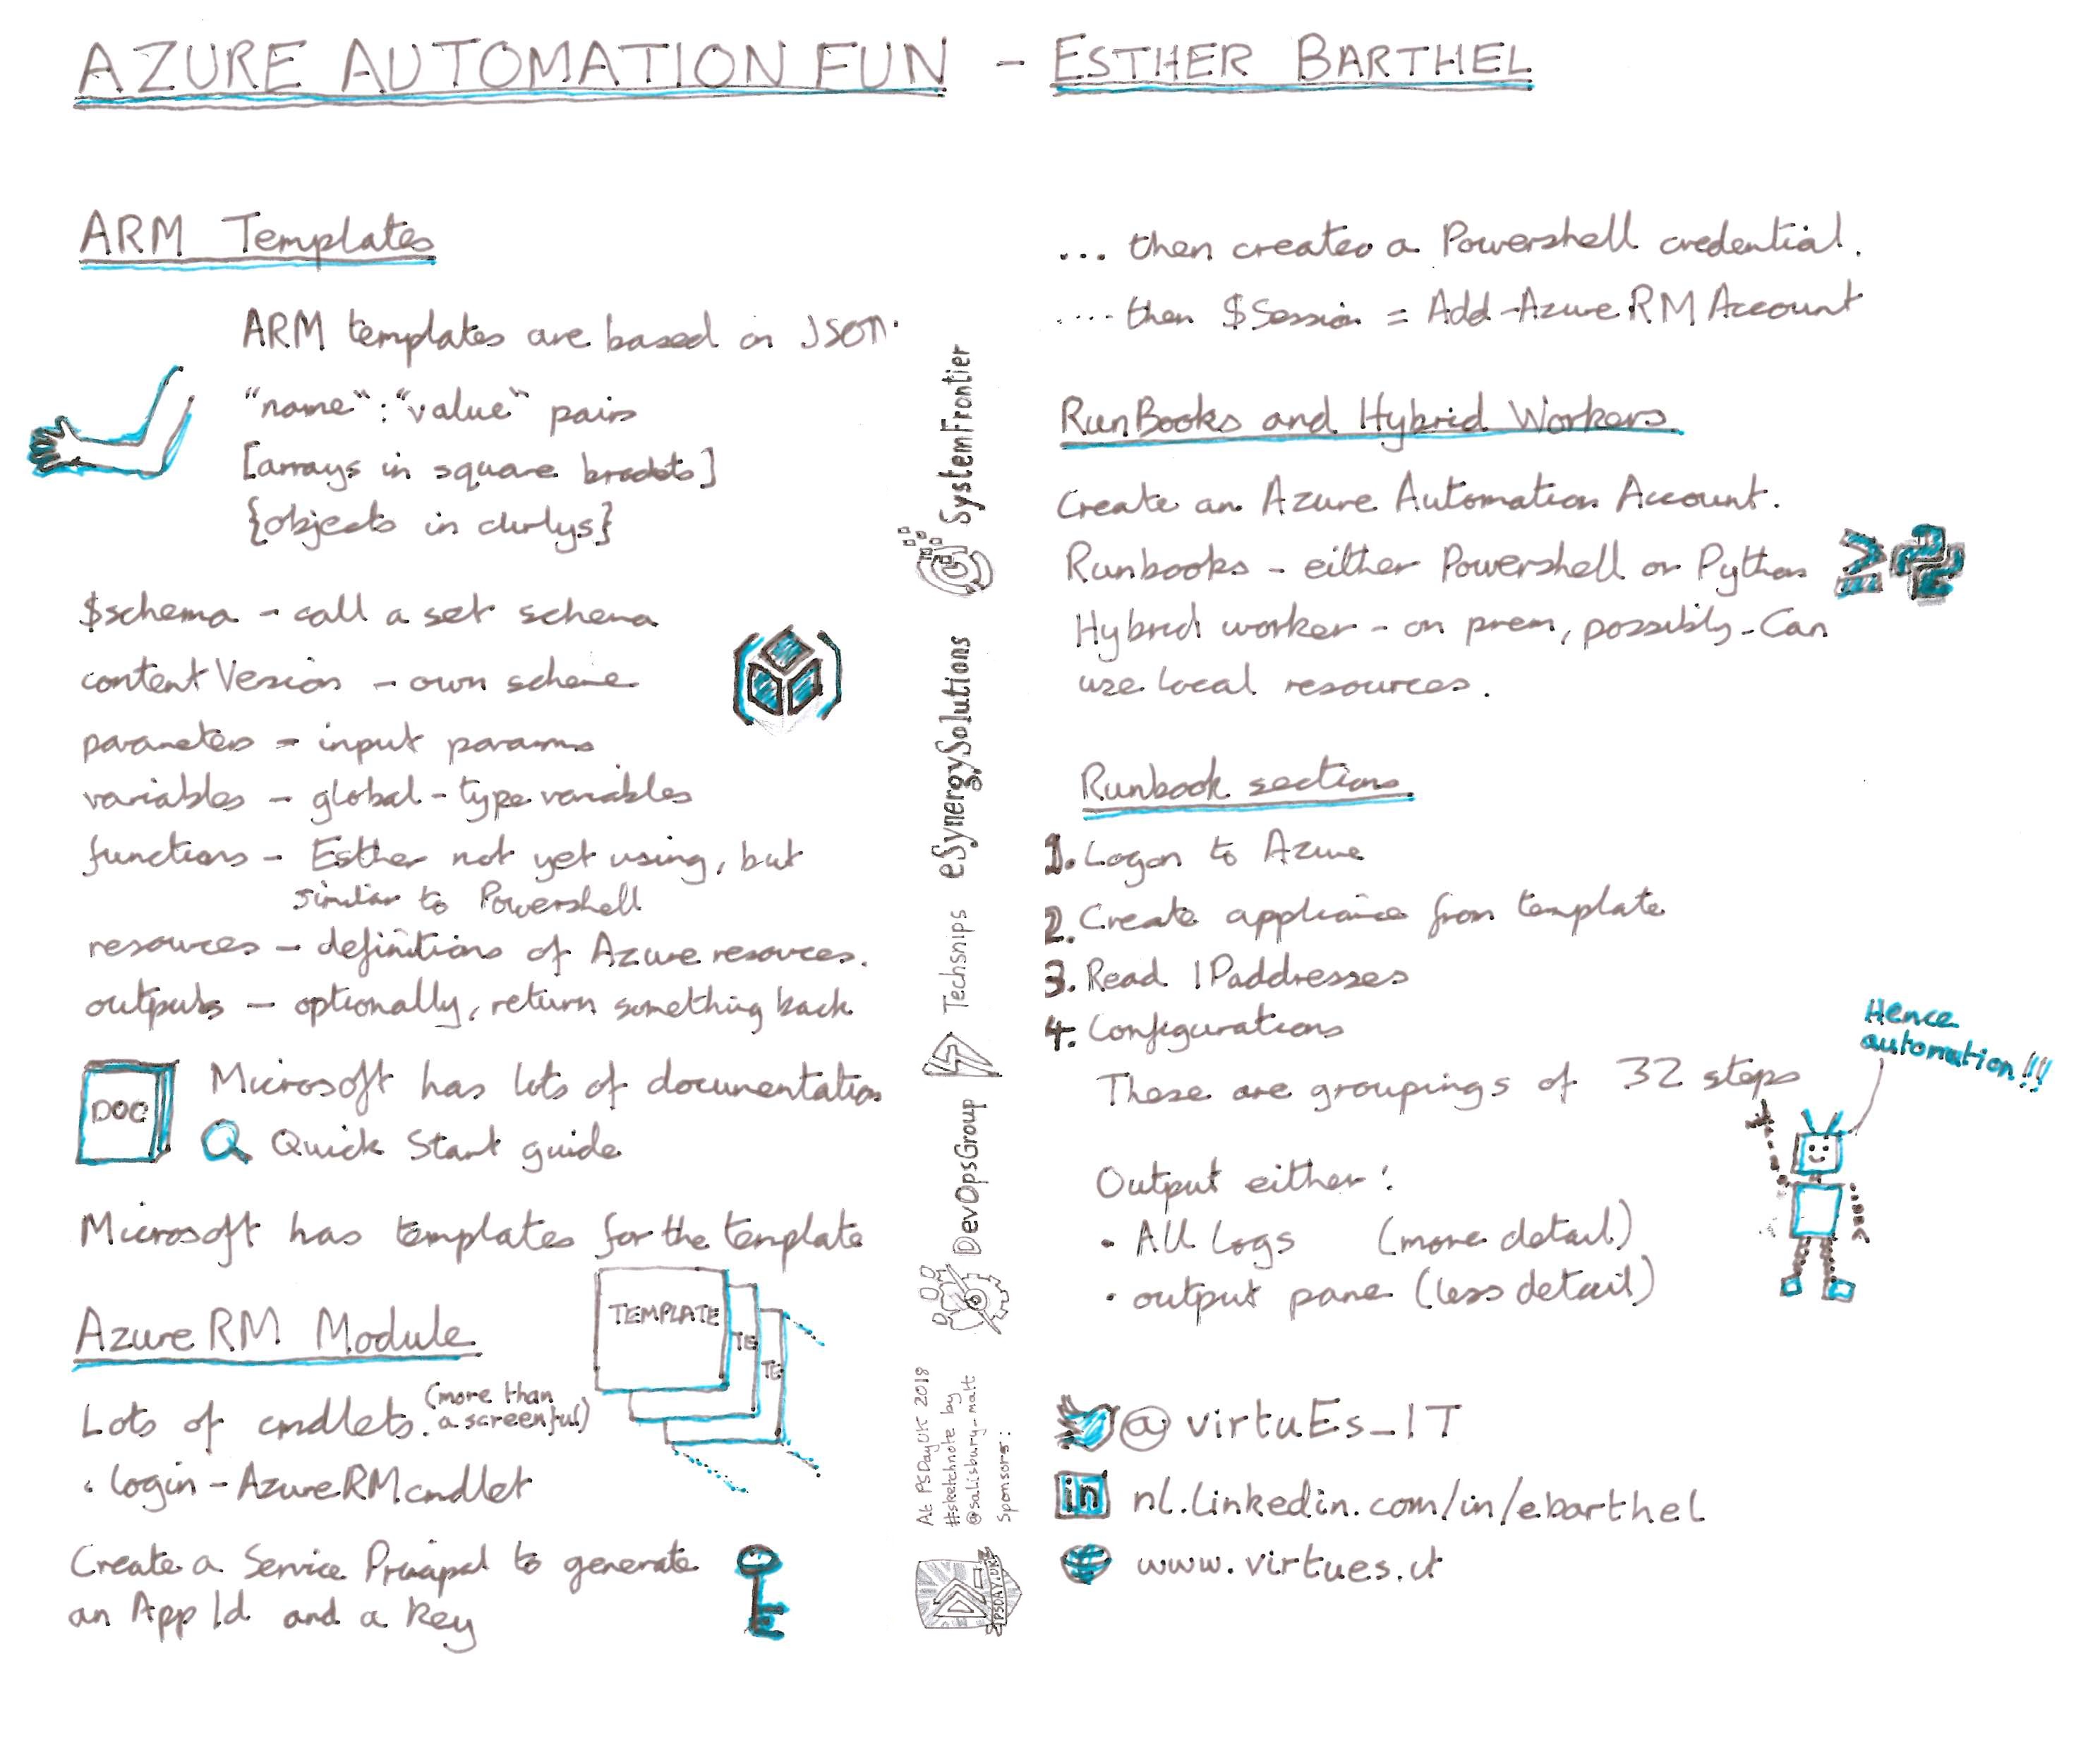 AZURE AUTOMATION FUN - ESTHER BARTHEL
ARM Templates
ARM templates are based on JSON.
"name":"value" pairs
[arrays in square brackets]
{objects in curlys}
$schema - call a set schema
contentVersion - own scheme
parameters - input params
variables - global-type variables
functions - Esther not yet using, but
similar to Powershell
resources - definitions of Azure resources.
outputs - optionally, return something back
DOC
Microsoft has lots of documentation
Quick Start guide
Microsoft has templates for the template
TEMPLATE
TE
TE
AzureRM Module
Lots of cmdlets. (more than
a screenful)
• login-AzureRM cmdlet
Create a Service Principal to generate
an App Id and a Key
SystemFrontier
eSynergySolutions
Techsnips
DevOpsGroup
At PSDayUK 2018
#sketchnote by
@salisbury_matt
Sponsors:
PSDAY.UK
... then creates a Powershell credential.
.... then $Session = Add-AzureRMAccount
RunBooks and Hybrid Workers
Create an Azure Automation Account.
Runbooks - either Powershell or Python
Hybrid worker - on prem, possibly - Can
use local resources.
Runbook sections
1. Logon to Azure
2. Create appliance from template
3. Read IPaddresses
4. Configurations
These are groupings of 32 steps
Hence
automation!!!
Output either:
• All Logs (more detail)
• output pane (less detail)
@virtuEs_IT
in nl.linkedin.com/in/ebarthel
www.virtues.it